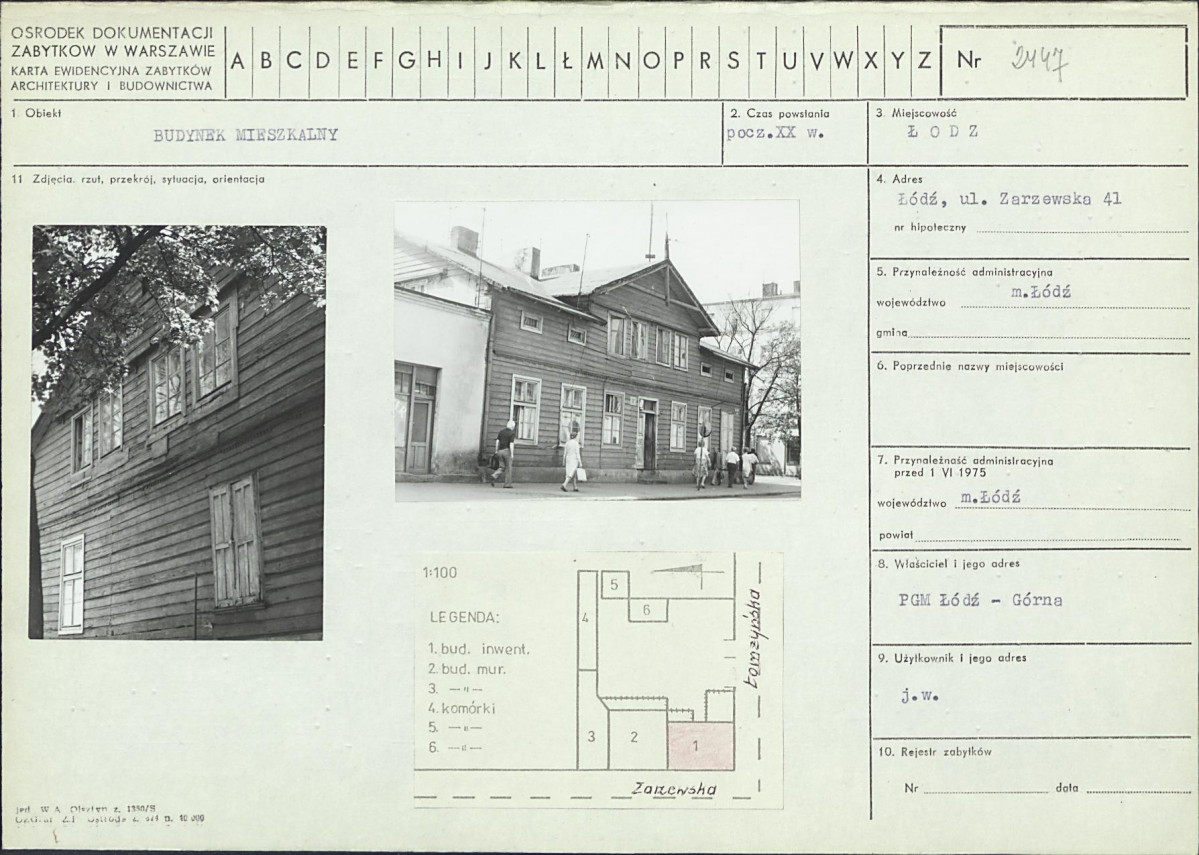 OŚRODEK DOKUMENTACJI
ZABYTKÓW W WARSZAWIE
KARTA EWIDENCYJNA ZABYTKÓW
ARCHITEKTURY I BUDOWNICTWA
A B C D E F G H I J K L Ł M N O P R S T U V W X Y Z
Nr 2447
1 Obiekt
BUDYNEK MIESZKALNY
2. Czas powstania
pocz.XX w.
3. Miejscowość
Ł O D Z
11 Zdjęcia. rzut, przekrój, sytuacja, orientacja
4. Adres
Łódź, ul. Zarzewska 41
nr hipoteczny
5. Przynależność administracyjna
województwo m.Łódź
gmina
6. Poprzednie nazwy miejscowości
7. Przynależność administracyjna
przed 1 VI 1975
województwo m.Łódź
powiat
8. Właściciel i jego adres
PGM Łódź - Górna
9. Użytkownik i jego adres
j.w.
10. Rejestr zabytków
Nr data
1:100
LEGENDA:
1. bud. inwent.
2. bud. mur.
3. —"—
4. komórki
5. —"—
6. —"—
5
6
4
3
2
1
Zarzewska
z. 1390/S